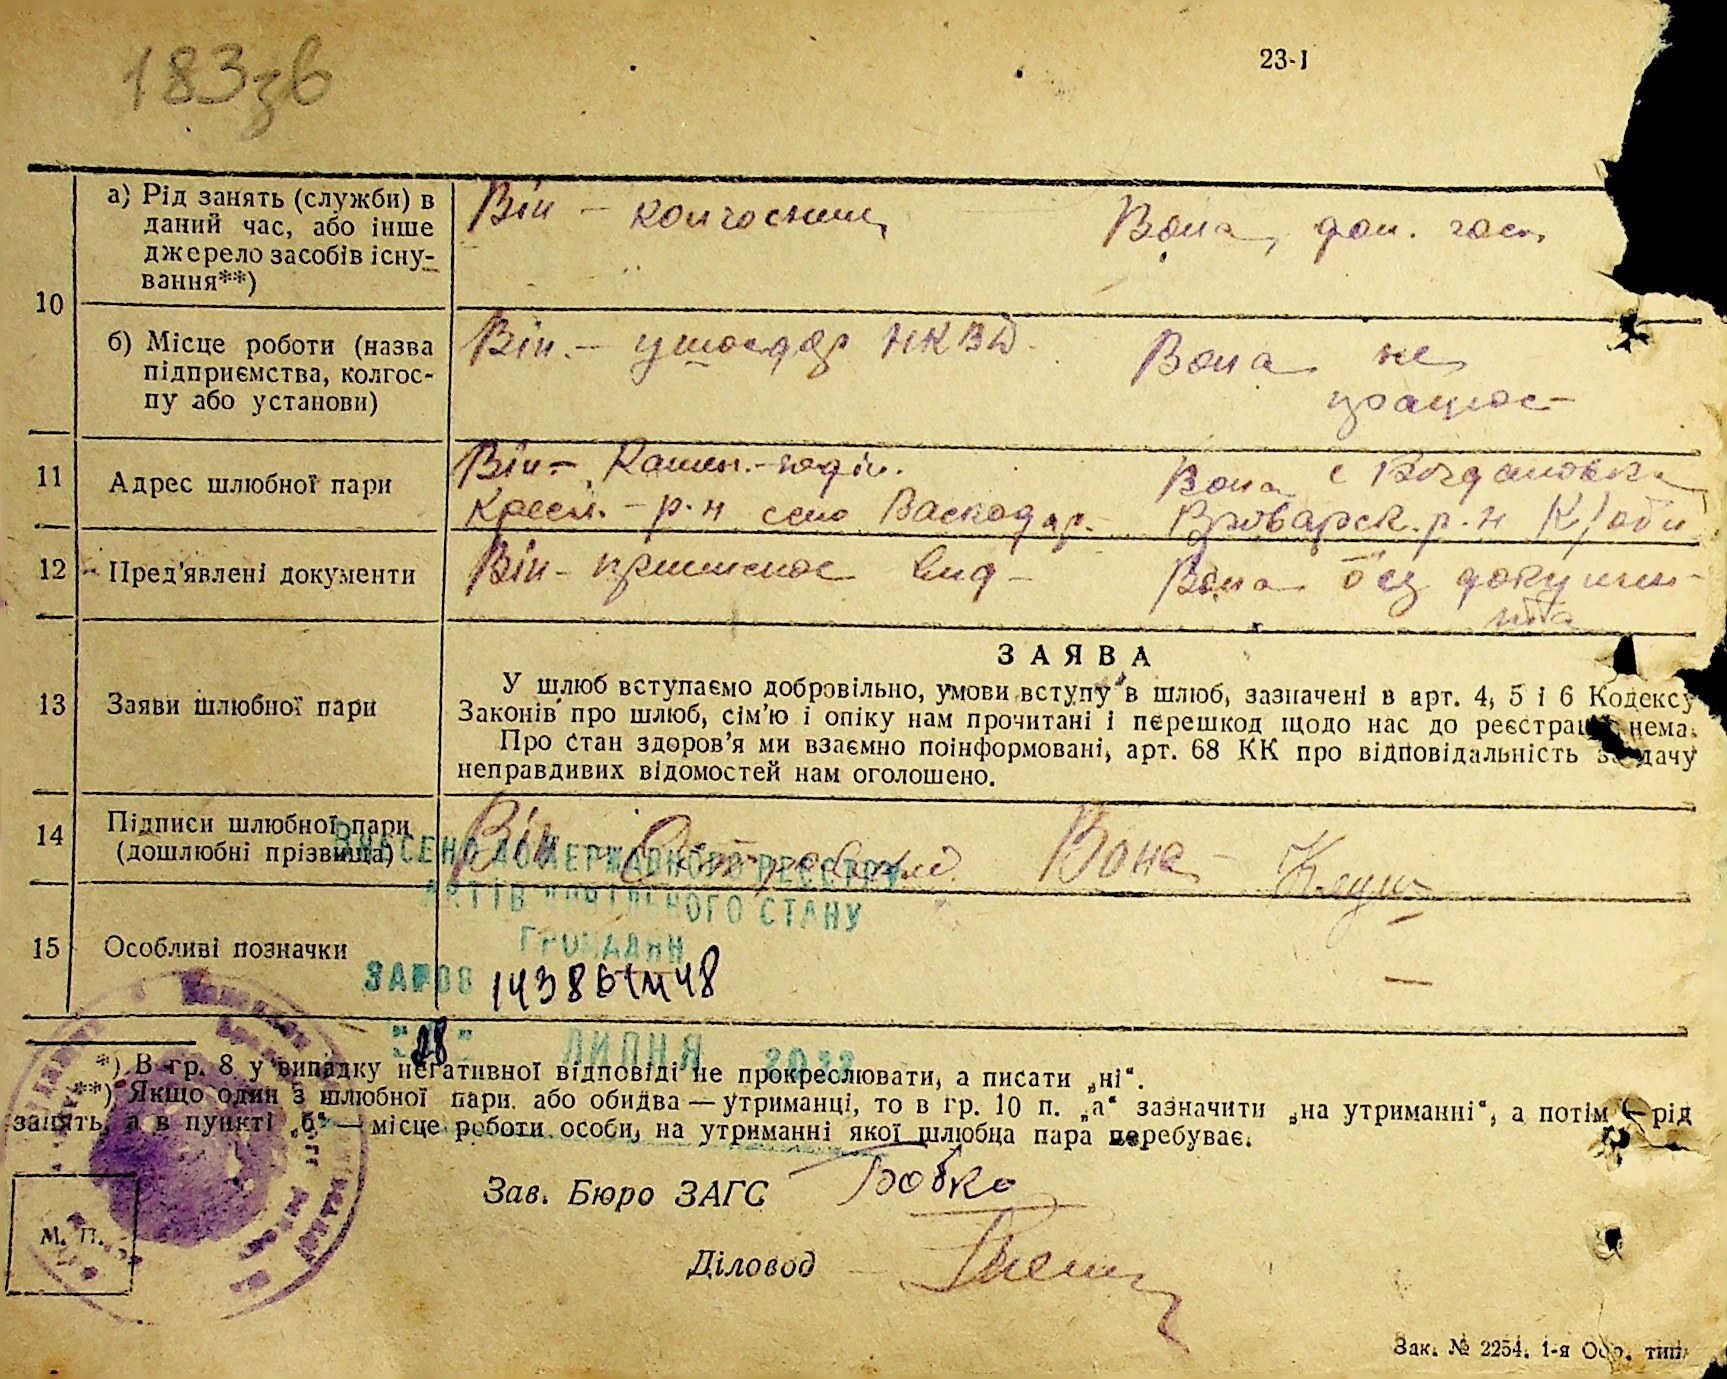 183зв
23-I
10
а) Рід занять (служби) в
даний час, або інше
джерело засобів існу-
вання**)
Він –
Вона, дом. госп.
б) Місце роботи (назва
підприємства, колгос-
пу або установи)
Він. – НКВД
Вона не
працює
11
Адрес шлюбної пари
Він – Камен.-
р-н село
Вона с Богдановка
Броварск. р-н К/обл
12
Пред'явлені документи
Він – приписное вид –
Вона без докумен-
та
13
Заяви шлюбної пари
ЗАЯВА
У шлюб вступаємо добровільно, умови вступу в шлюб, зазначені в арт. 4, 5 і 6 Кодексу
Законів про шлюб, сім'ю і опіку нам прочитані і перешкод щодо нас до реєстрац нема.
Про стан здоров'я ми взаємно поінформовані, арт. 68 КК про відповідальність за дачу
неправдивих відомостей нам оголошено.
14
Підписи шлюбної пари
(дошлюбні прізвища)
Він –
Вона –
ВНЕСЕНО ДО ДЕРЖАВНОГО РЕЄСТРУ
АКТІВ ЦИВІЛЬНОГО СТАНУ
ГРОМАДЯН
15
Особливі позначки
—
28 ЛИПНЯ
*) В гр. 8 у випадку негативної відповіді не прокреслювати, а писати „ні“.
**) Якщо один з шлюбної пари або обидва — утриманці, то в гр. 10 п. „а“ зазначити „на утриманні“, а потім — рід
занять, а в пункті „б“ — місце роботи особи, на утриманні якої шлюбна пара перебуває.
Зав. Бюро ЗАГС Бобко
М. П.
Діловод
Зак. № 2254. 1-я Обр. тип.